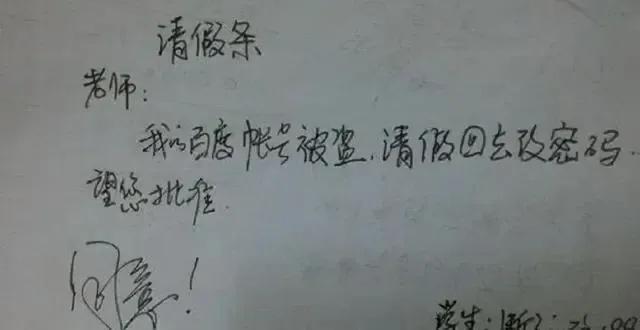 请假条
老师：
我的百度帐号被盗，请假回去改密码．
望您批准．
同意！
学生：